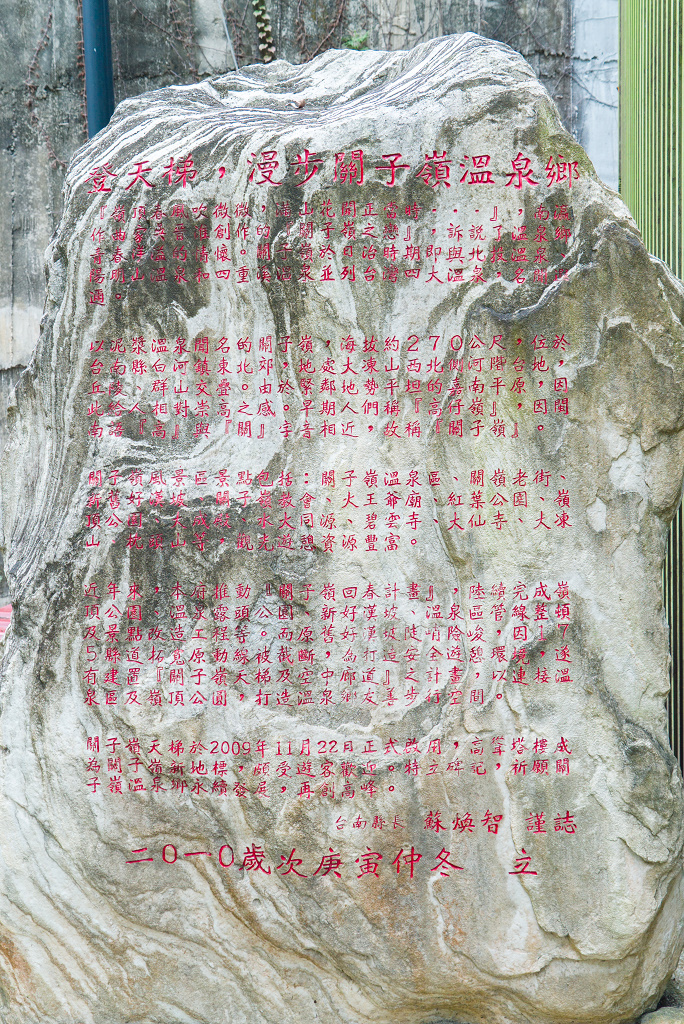 登天梯，漫步關子嶺溫泉鄉
『嶺頂春風吹微微，滿山花開正當時‧‧‧』，南瀛
作曲家吳晉淮創作的『關子嶺之戀』，訴說了溫泉鄉
關子嶺於日治時期，即與北投溫泉、
陽明山溫泉和四重溪溫泉並列台灣四大溫泉，名聞遐
邇。
以泥漿溫泉聞名的關子嶺，海拔約270公尺，位於
台南縣白河鎮東北郊，地處大凍山西北側河階台地，
丘陵群山交疊，由於緊鄰地勢平坦的嘉南平原，因
此給人相對崇高感。早期人們稱『高仔嶺』，因閩
南語『高』與『關』字音相近，故稱『關子嶺』。
關子嶺風景區景點包括：關子嶺溫泉區、關嶺老街、
舊好漢坡、關子嶺教會、火王爺廟、紅葉公園、嶺
頂公園、水火同源、碧雲寺、大仙寺、大凍
山、枕頭山等，觀光遊憩資源豐富。
近年來，本府推動『關子嶺回春計畫』，陸續完成嶺
頂公園、溫泉露頭公園、新好漢坡、溫泉區管線整頓
及景點改造工程等。而原舊好漢坡陡峭險峻，因17
5縣道拓寬原動線被截斷，為打造安全遊憩環境，遂
有建置『關子嶺天梯及空中廊道』之計畫，以連接溫
泉區及嶺頂公園，打造溫泉鄉友善步行空間。
關子嶺天梯於2009年11月22日正式啟用，高聳塔標成
為關子嶺新地標，頗受遊客歡迎。特立碑記，祈願關
子嶺溫泉鄉永續發展，再創高峰。
台南縣長 蘇煥智 謹誌
二０一０歲次庚寅仲冬 立